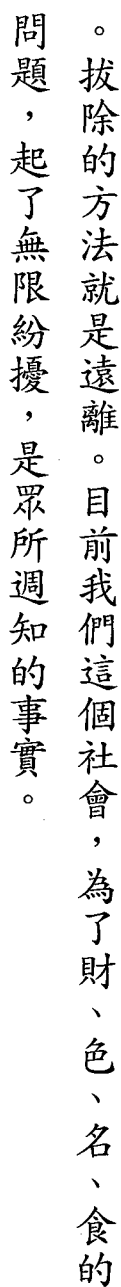 。拔除的方法就是遠離。目前我們這個社會，為了財、色、名、食的
問題，起了無限紛擾，是眾所週知的事實。